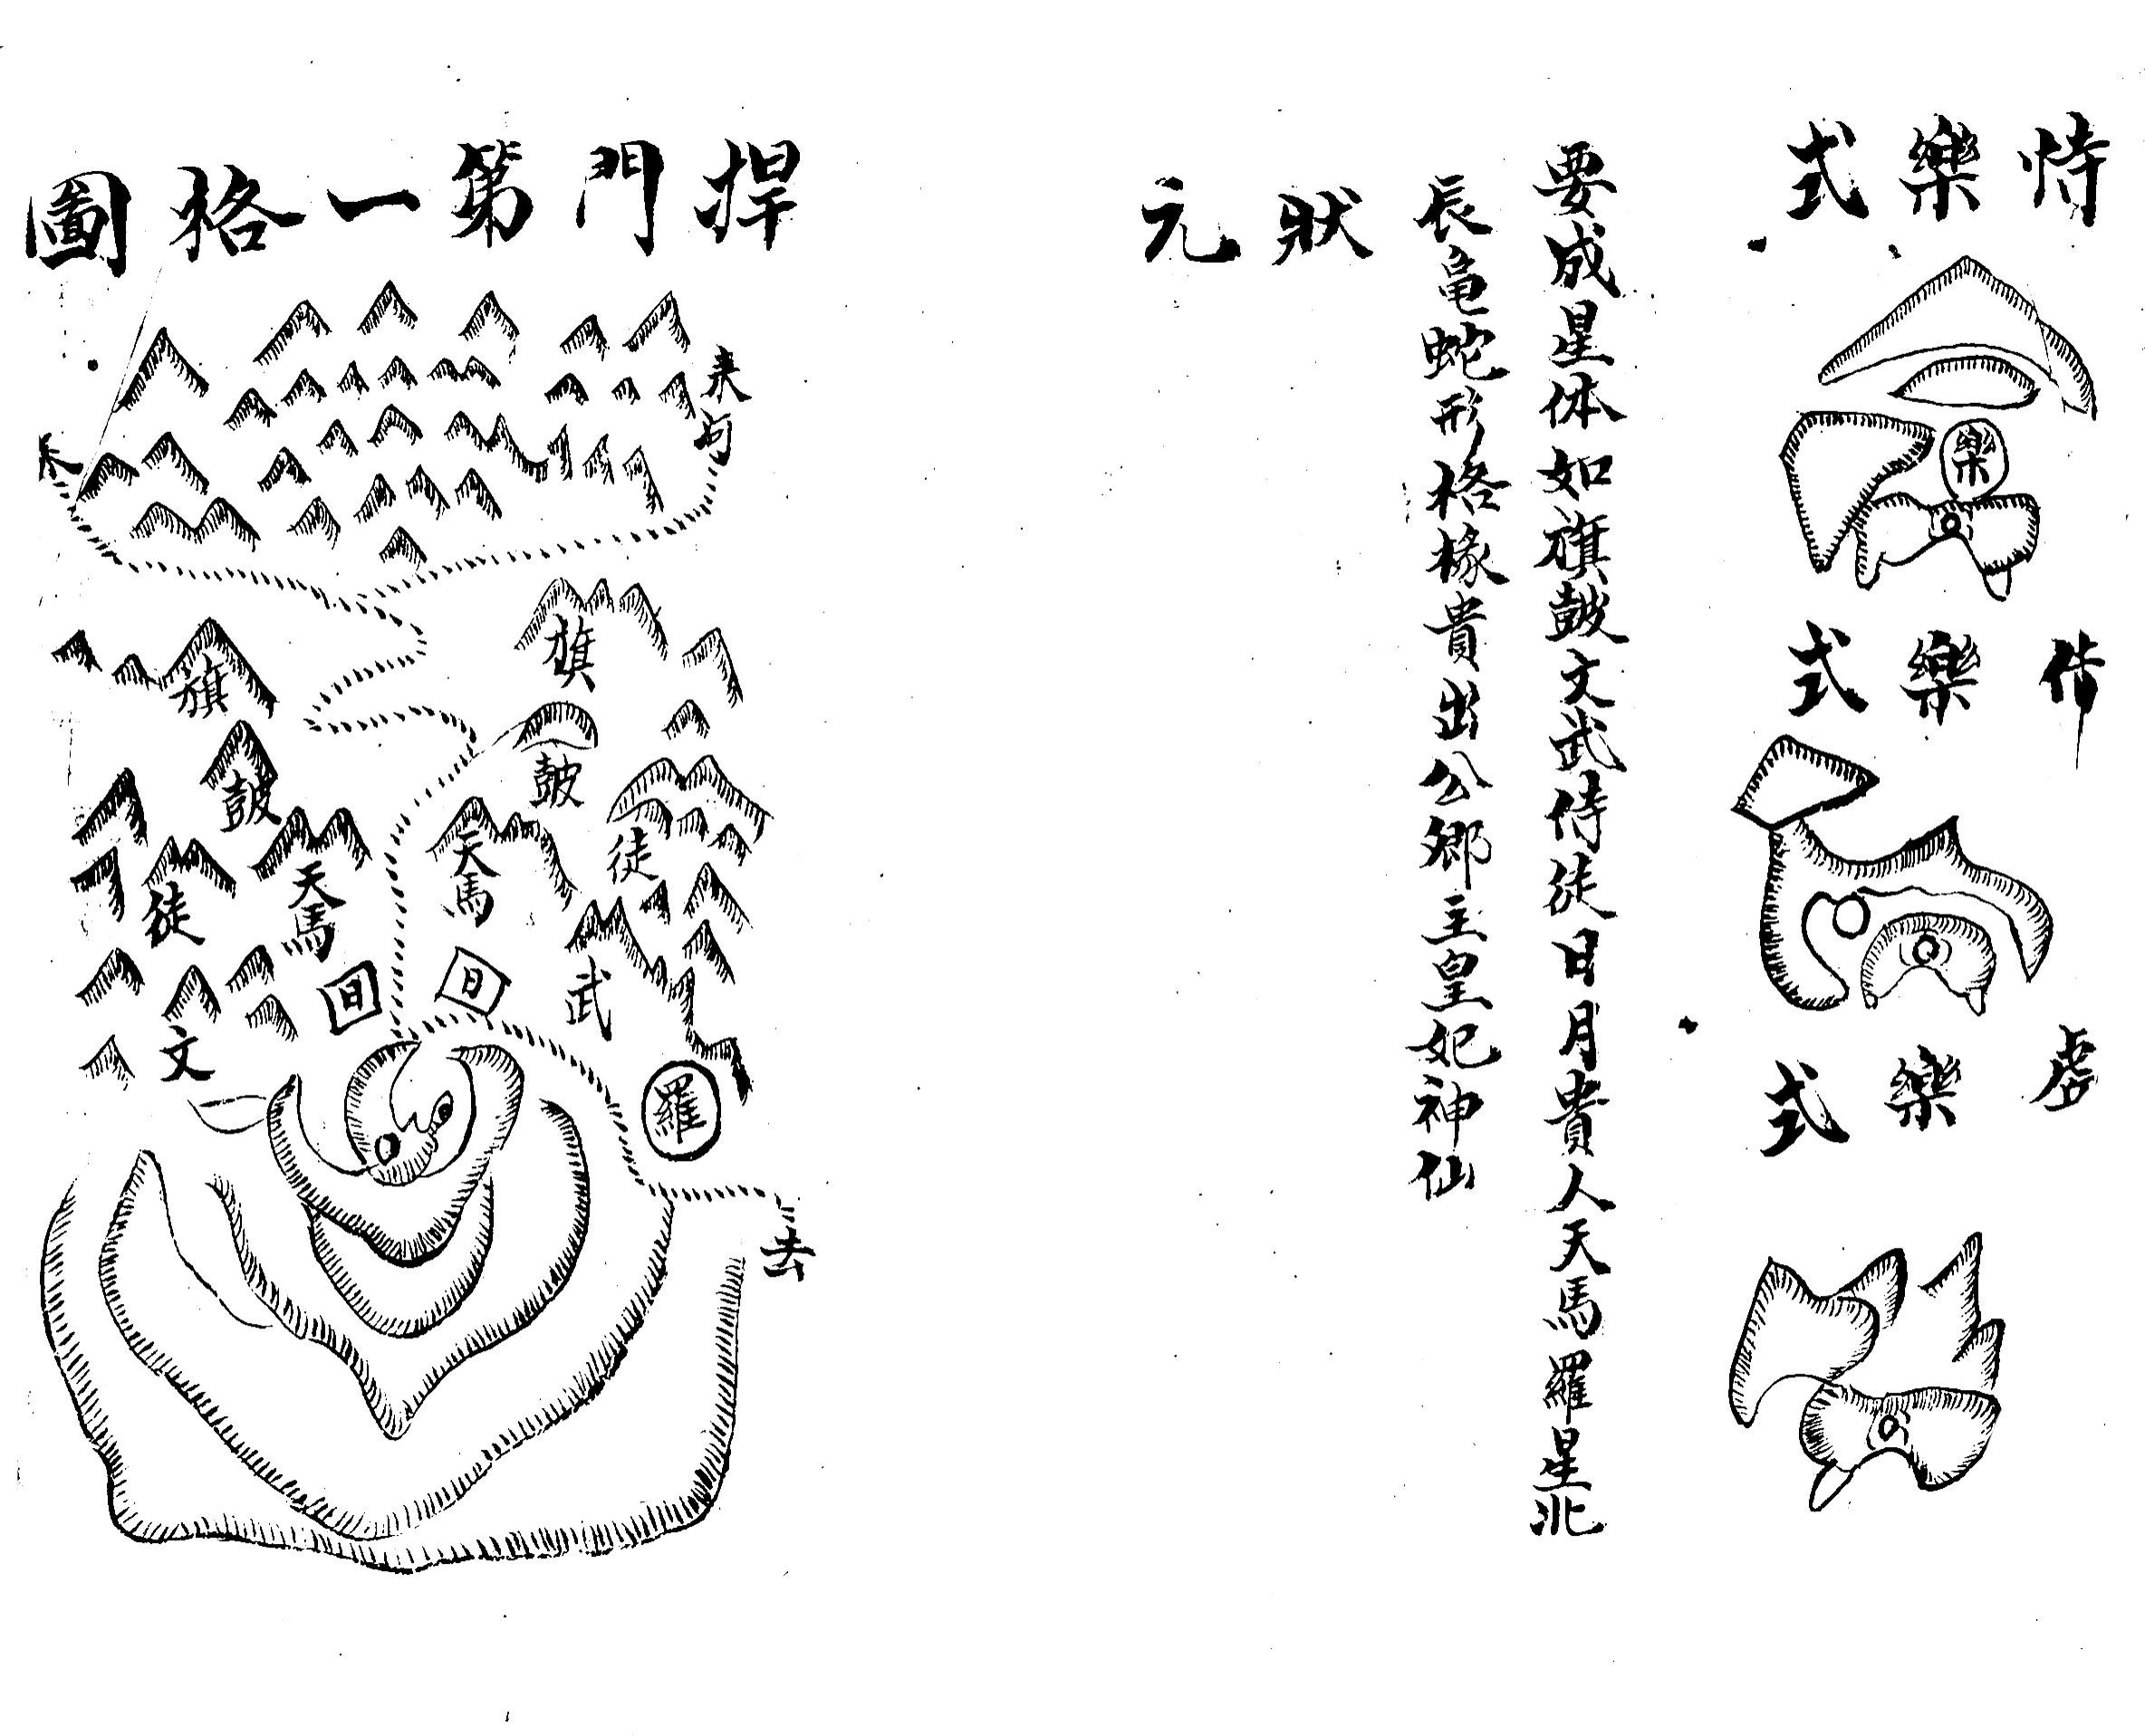 恃樂式
樂
借樂式
虛樂式
要成星体如旗皷文武侍徒日月貴人天馬羅星北
辰龜蛇形格椽貴出公郷主皇妃神仙
狀元
捍門第一格圖
来
旗
皷
天馬
徒
武
羅
去
旗
皷
天馬
徒
文